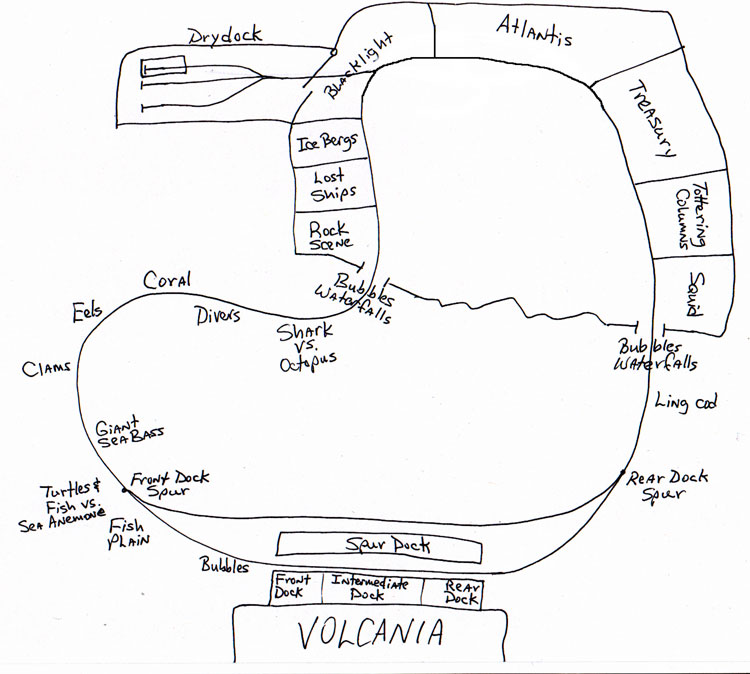 Drydock
Blacklight
Atlantis
Treasury
Tottering
Columns
Squid
Ice Bergs
Lost
Ships
Rock
Scene
Bubbles
Waterfalls
Bubbles
Waterfalls
Coral
Eels
Divers
Shark
vs.
Octopus
Clams
Ling cod
Giant
Sea Bass
Front Dock
Spur
Rear Dock
Spur
Turtles &
Fish vs.
Sea Anemone
Fish
Plain
Bubbles
Spur Dock
Front
Dock
Intermediate
Dock
Rear
Dock
VOLCANIA